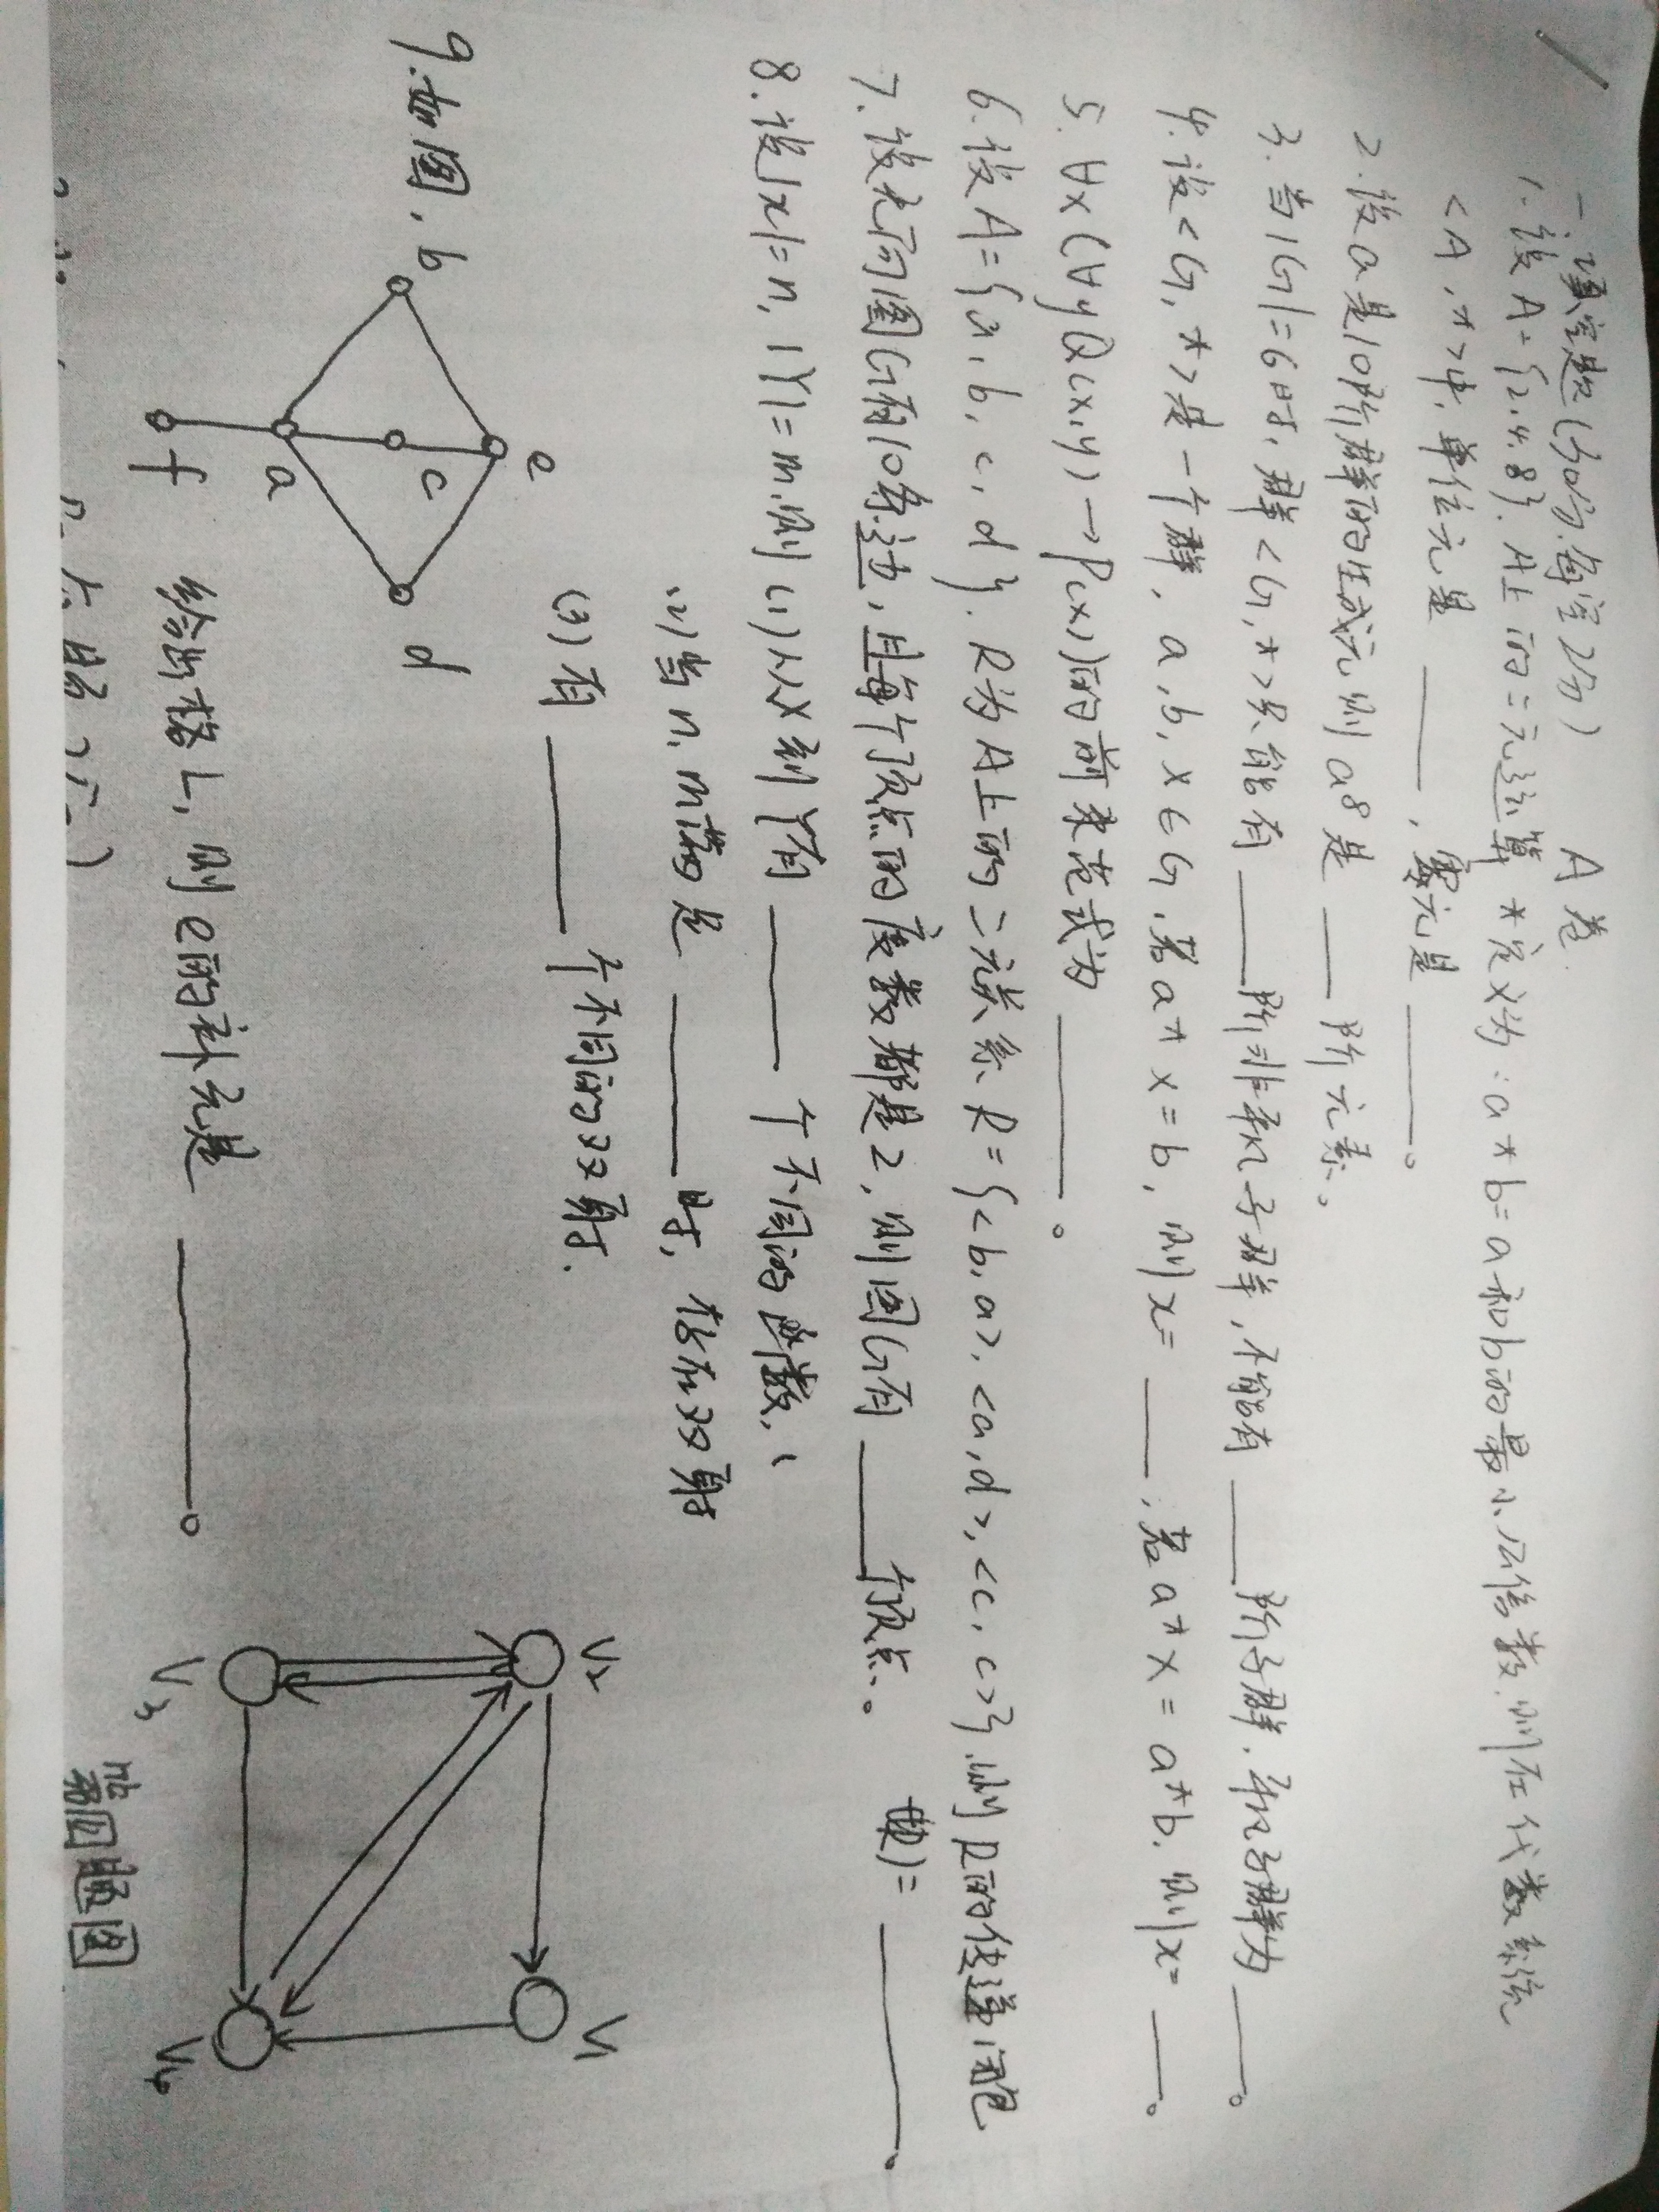 一.填空题(30分.每空2分) A卷.
1.设A={2.4.8}.A上的二元运算*定义为:a*b=a和b的最小公倍数.则在代数系统
<A,*>中,单位元是____,零元是____。
2.设a是10阶群的生成元则a⁸是___阶元素。
3.当|G|=6时,群<G,*>只能有____阶非平凡子群,不能有____阶子群.平凡子群为___。
4.设<G,*>是一个群,a,b,x∈G.若a*x=b,则x=___;若a*x=a*b.则x=___。
5.∀x(∀yQ(x,y)→P(x))的前束范式为______。
6.设A={a,b,c,d}.R为A上的二元关系R={<b,a>,<a,d>,<c,c>},则R的传递闭包
t(R)=______。
7.设无向图G有10条边,且每个顶点的度数都是2,则图G有____个顶点。
8.设|x|=n,|Y|=m,则(1)从X到Y有____个不同的函数,
(2)当n,m满足____时,存在双射
(3)有____个不同的双射.
9.如图,
e
b
c
d
a
f
给出格L,则e的补元是______。
V2
V1
V3
V4
第四题图